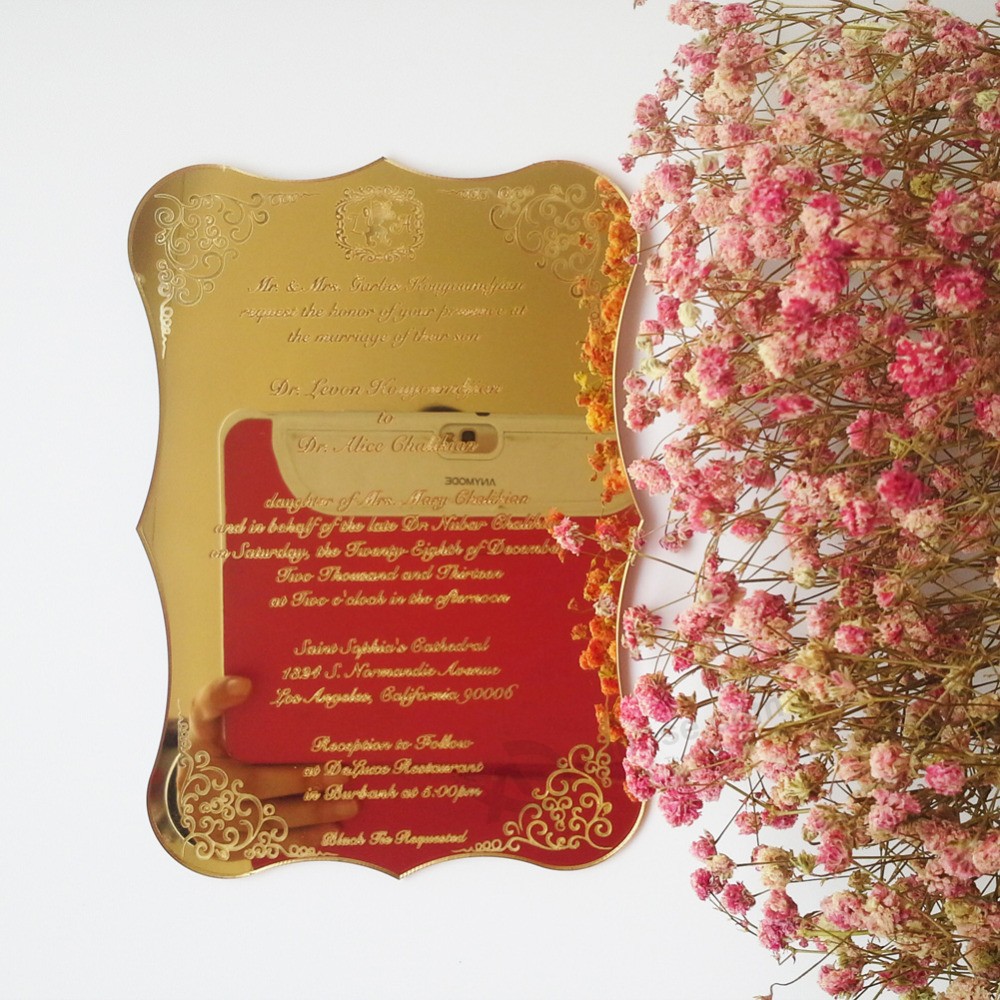 Mr. & Mrs. Garbis
request the honor of your presence at
the marriage of their son
Dr. Levon
to
Dr. Alice
daughter of Mrs. Mary
and in behalf of the late Dr. Nubar
on Saturday, the Twenty-Eighth of December
Two Thousand and Thirteen
at Two o'clock in the afternoon
Saint Sophia's Cathedral
1324 S. Normandie Avenue
Los Angeles, California 90006
Reception to Follow
at DeLuxe Restaurant
in Burbank at 6:00pm
Black Tie Requested
ANYMODE